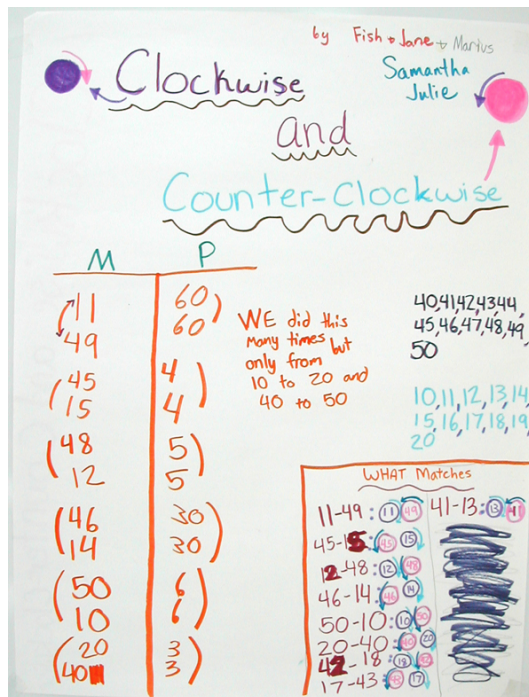 by Fish + Jane + Marius
Samantha
Julie
Clockwise
and
Counter-Clockwise
M P
11 60
49 60
45 4
15 4
48 5
12 5
46 30
14 30
50 6
10 6
20 3
40 3
WE did this
Many times but
only from
10 to 20 and
40 to 50
40,41,42,43,44,
45,46,47,48,49,
50
10,11,12,13,14
15,16,17,18,19
20
WHAT Matches
11-49: 11 49
45-15: 45 15
12-48: 12 48
46-14: 46 14
50-10: 10 50
20-40: 40 20
42-18: 18 42
17-43: 43 17
41-13: 13 41